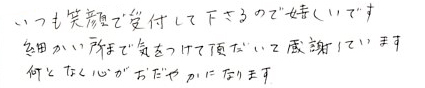 いつも笑顔で受付して下さるので嬉しいです
細かい所まで気をつけて頂だいて感謝しています
何となく心がおだやかになります